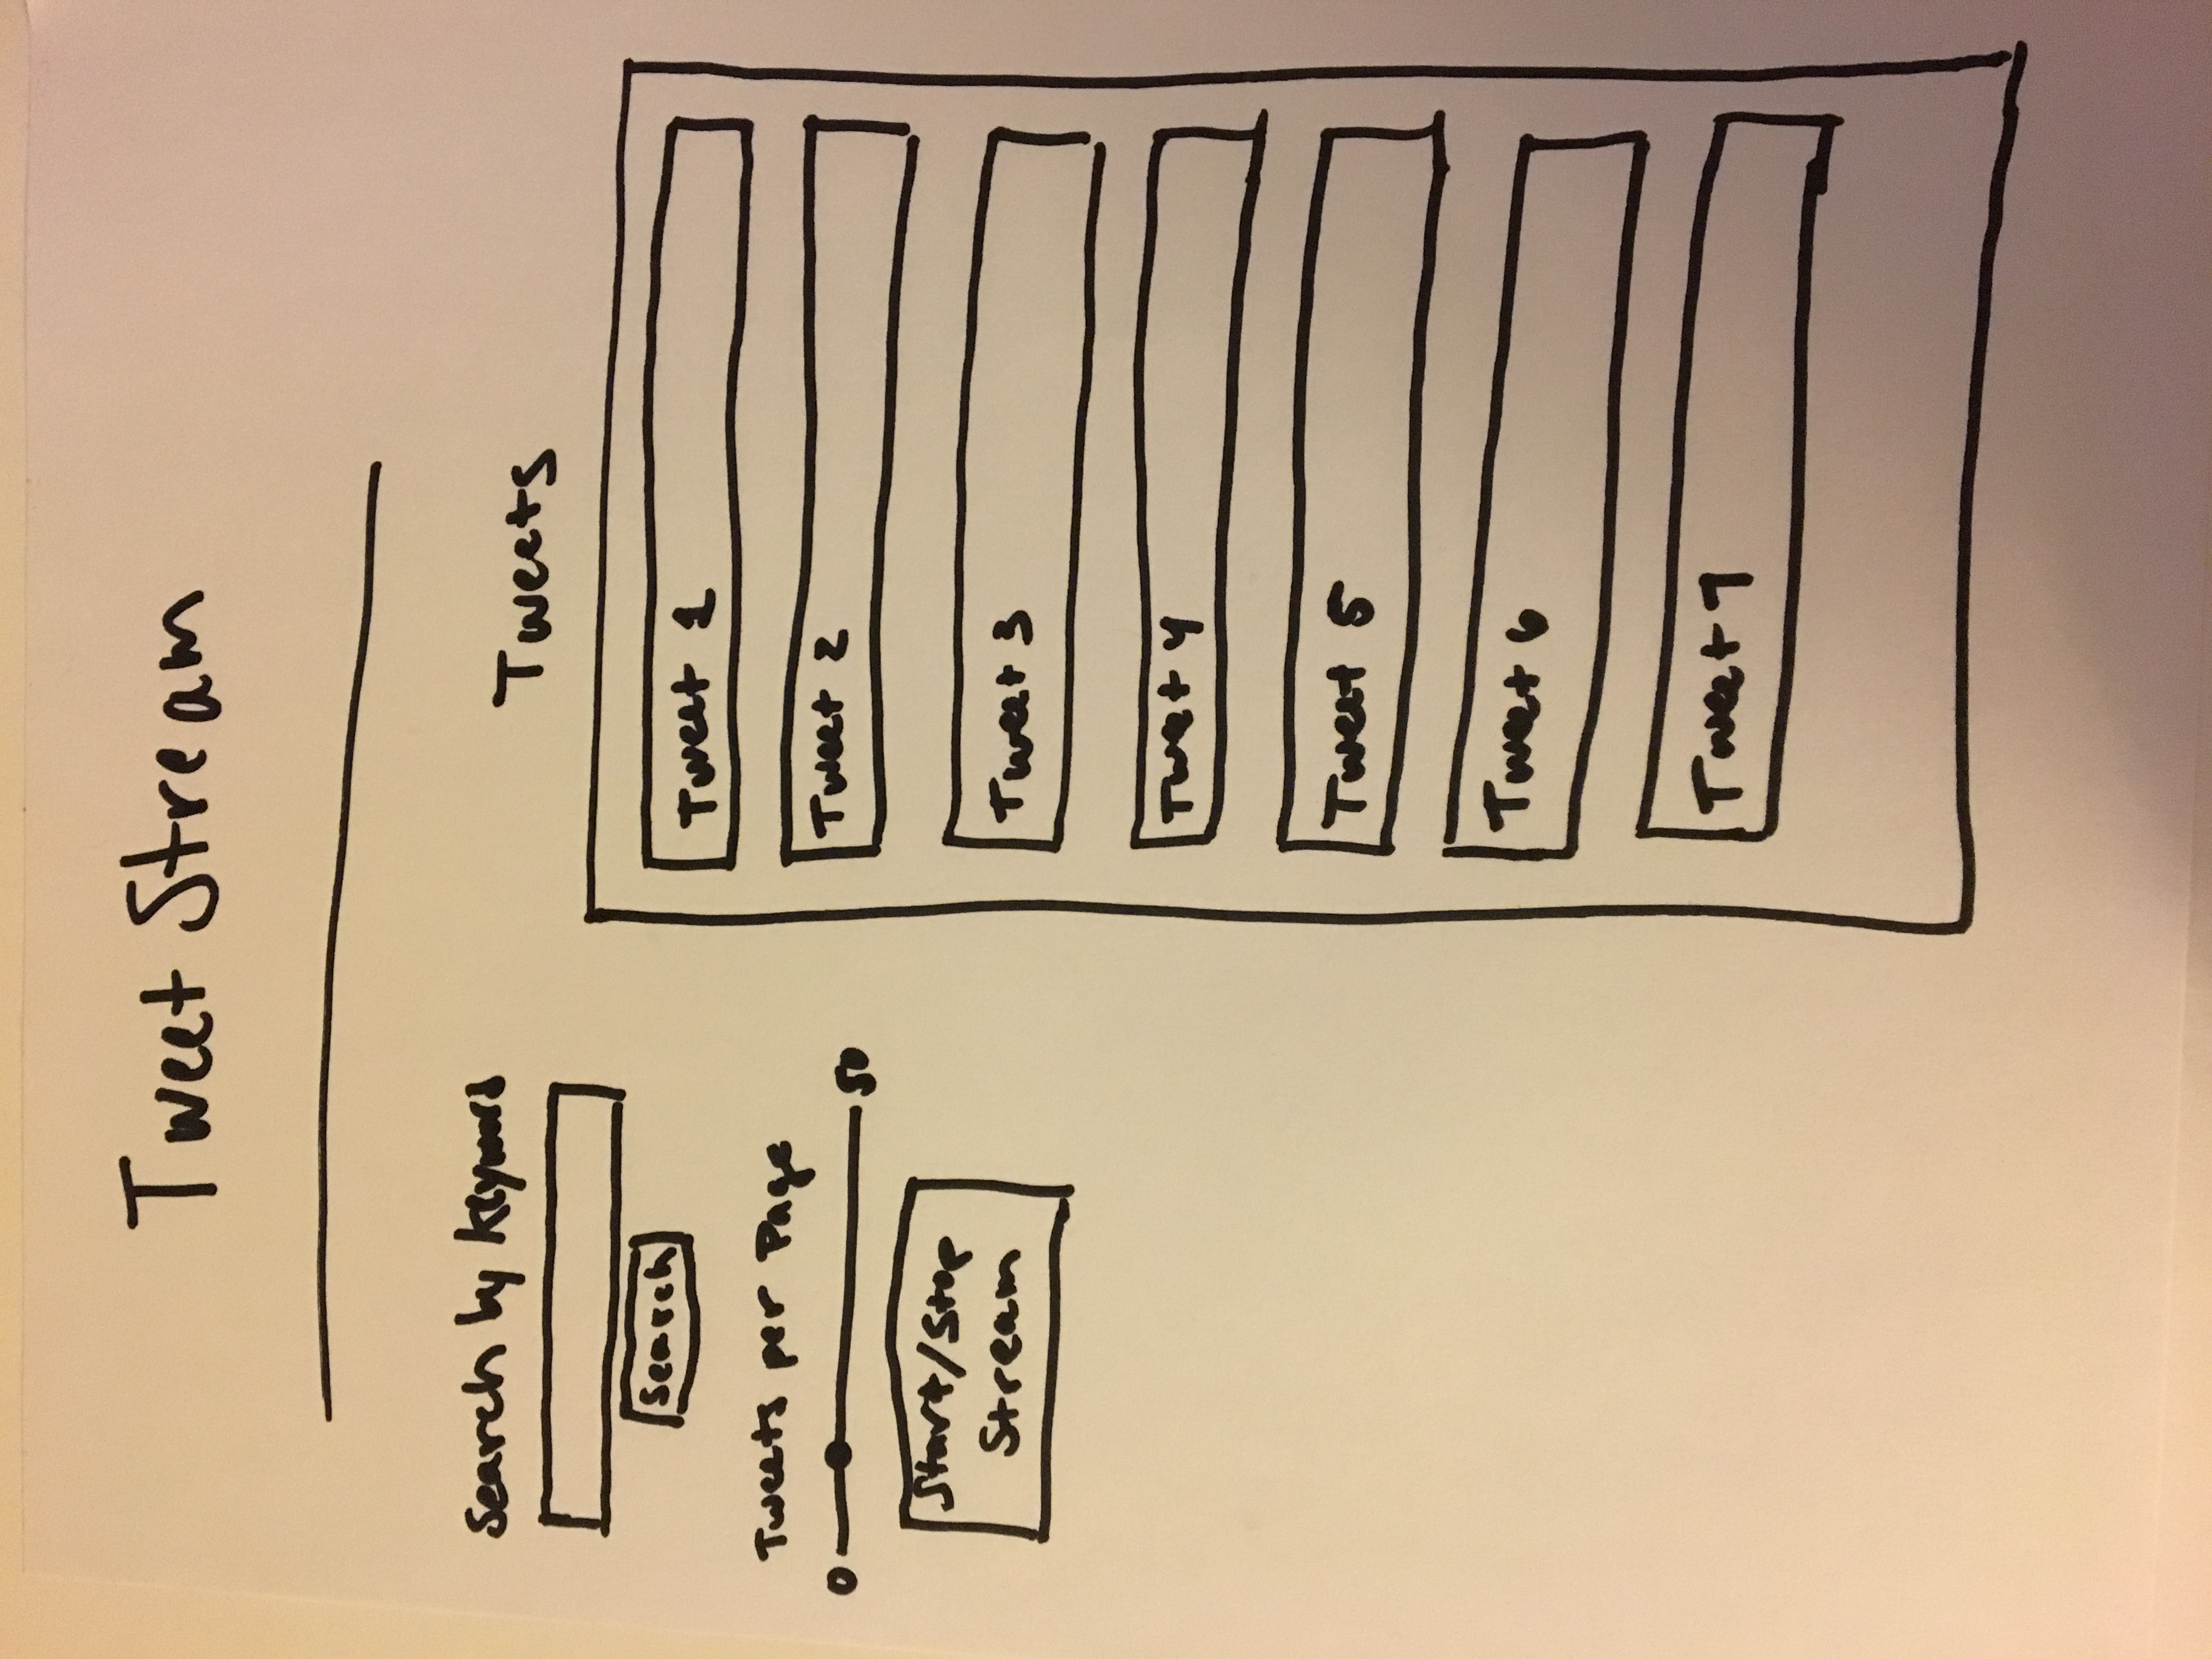 Tweet Stream
Search by Keyword
Search
Tweets per Page
0 50
Start/Stop
Stream
Tweets
Tweet 1
Tweet 2
Tweet 3
Tweet 4
Tweet 5
Tweet 6
Tweet 7